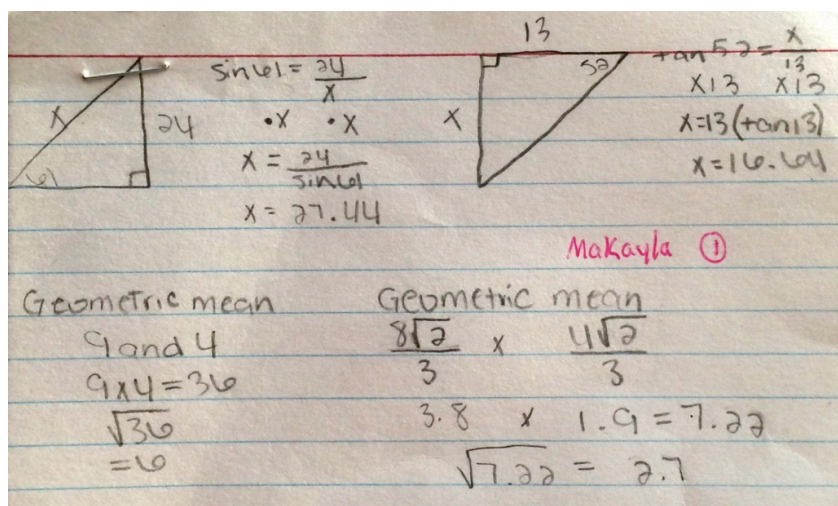 x
24
61
sin61 = 24/x
•x •x
x = 24/sin61
x = 27.44
13
52
x
tan 52 = x/13
x13 x13
x=13(tan13)
x=16.64
Makayla ①
Geometric mean
9 and 4
9x4=36
√36
=6
Geometric mean
8√2/3 x 4√2/3
3.8 x 1.9 = 7.22
√7.22 = 2.7